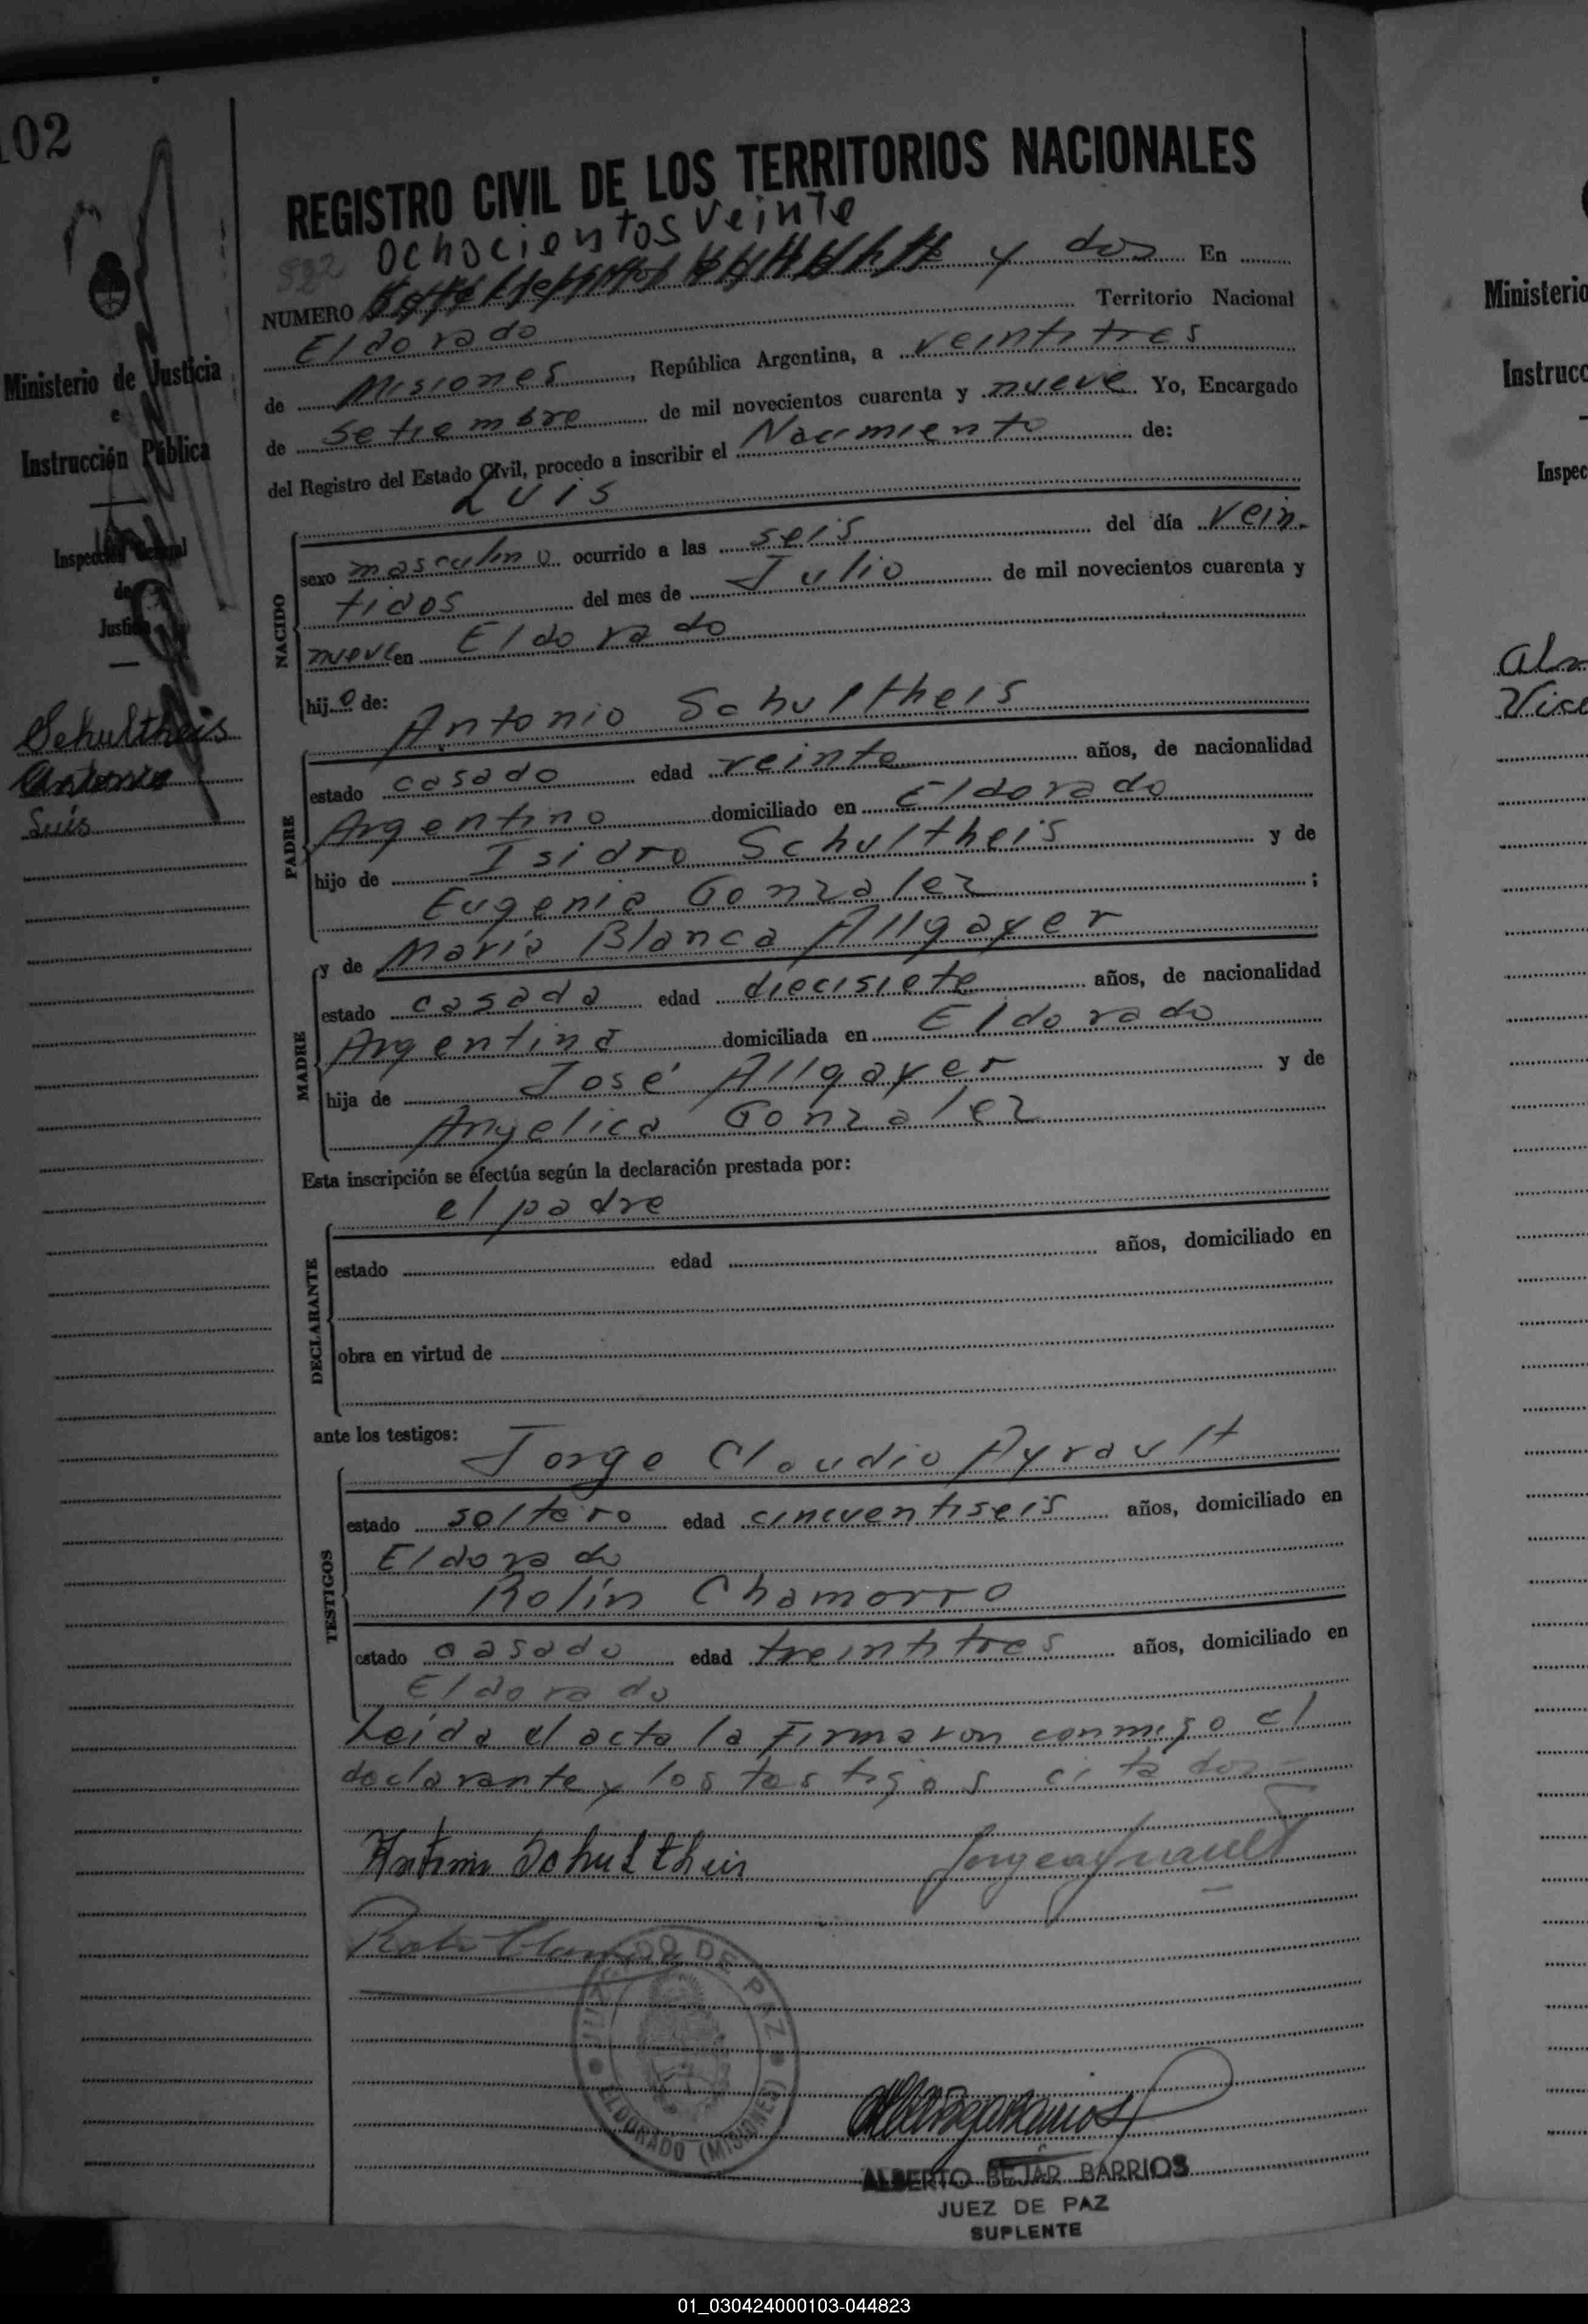 102
REGISTRO CIVIL DE LOS TERRITORIOS NACIONALES
Ochocientos Veinte
822
NUMERO y dos En
Eldorado Territorio Nacional
de Misiones, República Argentina, a veintitres
de Setiembre de mil novecientos cuarenta y nueve Yo, Encargado
del Registro del Estado Civil, procedo a inscribir el Nacimiento de:
Luis
sexo masculino ocurrido a las seis del día vein-
tidos del mes de Julio de mil novecientos cuarenta y
nueve en Eldorado
hijo de:
NACIDO
Antonio Schultheis
estado casado edad veinte años, de nacionalidad
Argentino domiciliado en Eldorado
hijo de Isidro Schultheis y de
Eugenia Gonzalez ;
PADRE
y de Maria Blanca Allgayer
estado casada edad diecisiete años, de nacionalidad
Argentina domiciliada en Eldorado
hija de José Allgayer y de
Angelica Gonzalez
MADRE
Esta inscripción se efectúa según la declaración prestada por:
el padre
estado edad años, domiciliado en
obra en virtud de
DECLARANTE
ante los testigos:
Jorge Claudio Ayrault
estado soltero edad cincuentiseis años, domiciliado en
Eldorado
Rolín Chamorro
estado casado edad treintitres años, domiciliado en
Eldorado
TESTIGOS
Leída el acta la firmaron conmigo el
declarante y los testigos citados
Antonio Schultheis
JUZGADO DE PAZ
ELDORADO (MISIONES)
ALBERTO BEJAR BARRIOS
JUEZ DE PAZ
SUPLENTE
Ministerio de Justicia
e
Instrucción Pública
Inspección General
de
Justicia
Schultheis
Antonio
Luis
Ministerio
Instrucc
Inspec
Vice
01_030424000103-044823